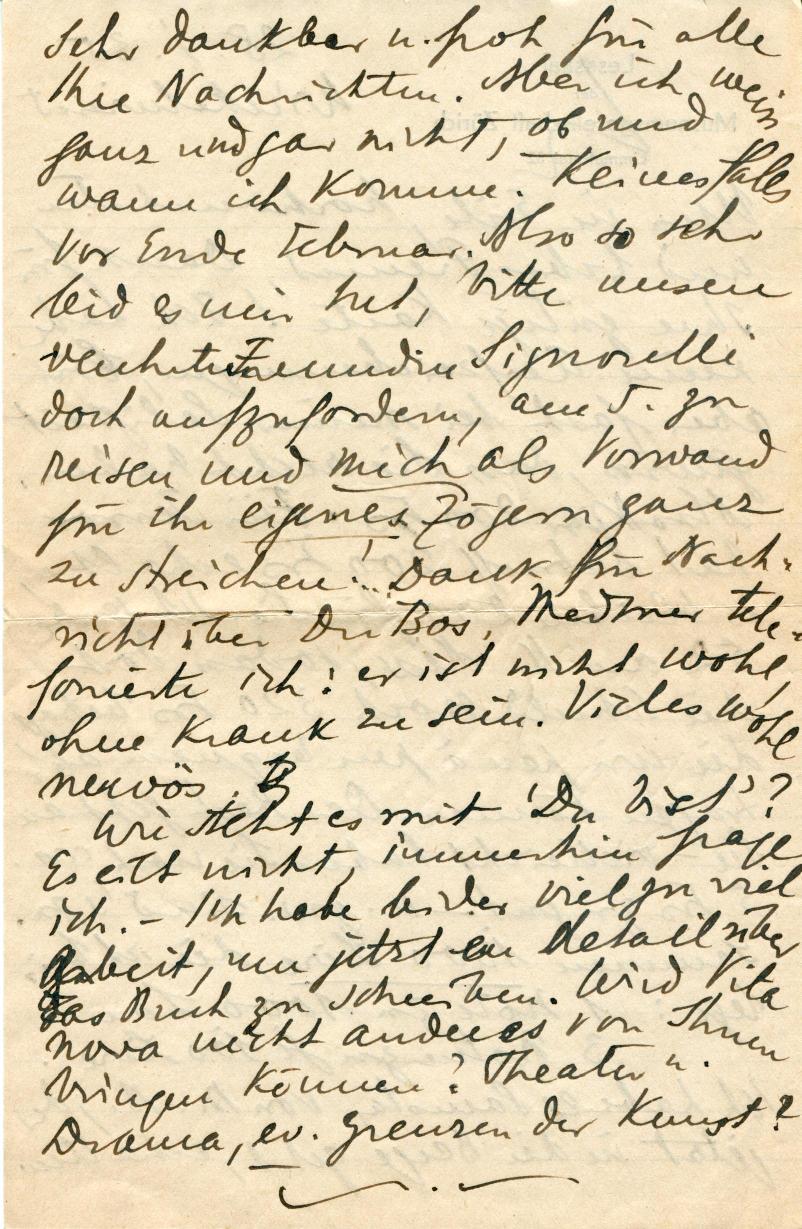 sehr dankbar u. froh für alle
Ihre Nachrichten. Aber ich weiss
ganz und gar nicht, ob und
wann ich komme. Keinesfalls
vor Ende Februar. Also so sehr
leid es mir tut, bitte unsere
verehrte Freundin Signorelli
doch aufzufordern, am 5. zu
reisen und mich als Vorwand
für ihr eigenes Zögern ganz
zu streichen! Dank für Nach-
richt über Du Bos. Medtner tele-
fonierte ich: er ist nicht wohl,
ohne krank zu sein. Vieles wohl
nervös.
Wie steht es mit 'Du bist'?
Es eilt nicht, immerhin frage
ich. – Ich habe leider viel zu viel
Arbeit, um jetzt en detail über
das Buch zu schreiben. Wird Vita
nova nicht anderes von Ihnen
bringen können? Theater u.
Drama, ev. Grenzen der Kunst?